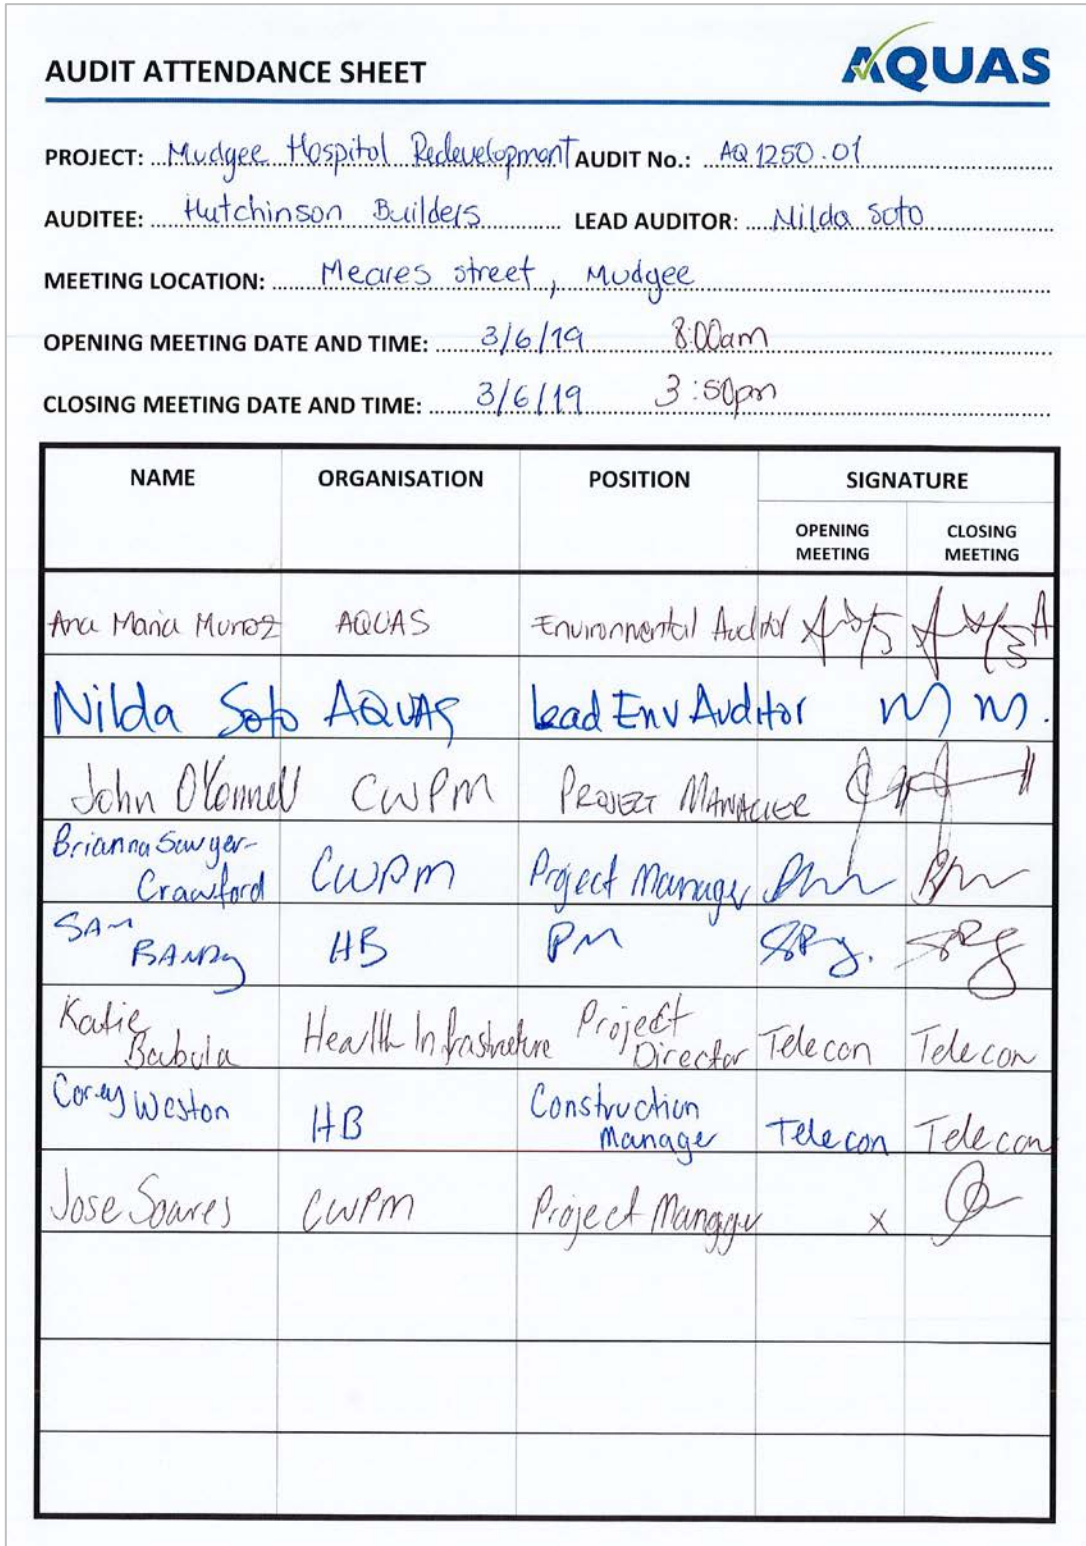 AUDIT ATTENDANCE SHEET
AQUAS
PROJECT: Mudgee Hospital Redevelopment AUDIT No.: AQ1250.01
AUDITEE: Hutchinson Builders LEAD AUDITOR: Nilda Soto
MEETING LOCATION: Meares street, Mudgee
OPENING MEETING DATE AND TIME: 3/6/19 8:00am
CLOSING MEETING DATE AND TIME: 3/6/19 3:50pm
NAME ORGANISATION POSITION SIGNATURE
OPENING MEETING CLOSING MEETING
Ana Maria Munoz AQUAS Environmental Auditor
Nilda Soto AQUAS Lead Env Auditor
John O'Connell CWPM PROJECT MANAGER
Brianna Sawyer-
Crawford CWPM Project Manager
SAM
BANDY HB PM
Katie
Babula Health Infrastructure Project
Director Telecon Telecon
Corey Weston HB Construction
Manager Telecon Telecon
Jose Soares CWPM Project Manager x